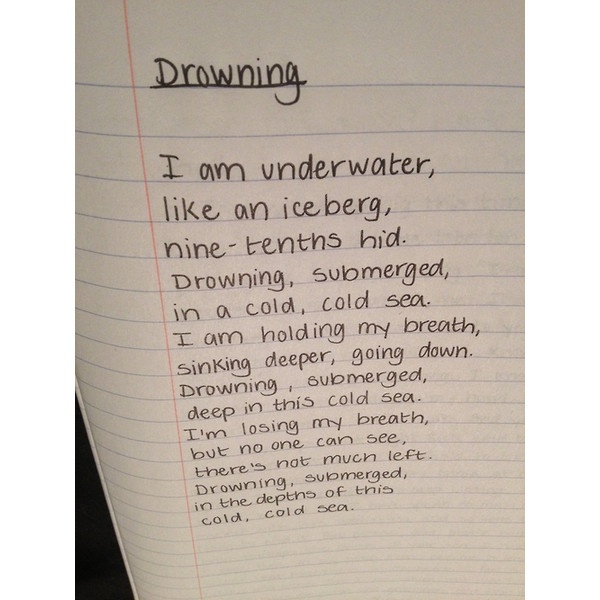 Drowning
I am underwater,
like an iceberg,
nine-tenths hid.
Drowning, submerged,
in a cold, cold sea.
I am holding my breath,
sinking deeper, going down.
Drowning, submerged,
deep in this cold sea.
I'm losing my breath,
but no one can see,
there's not much left.
Drowning, submerged,
in the depths of this
cold, cold sea.